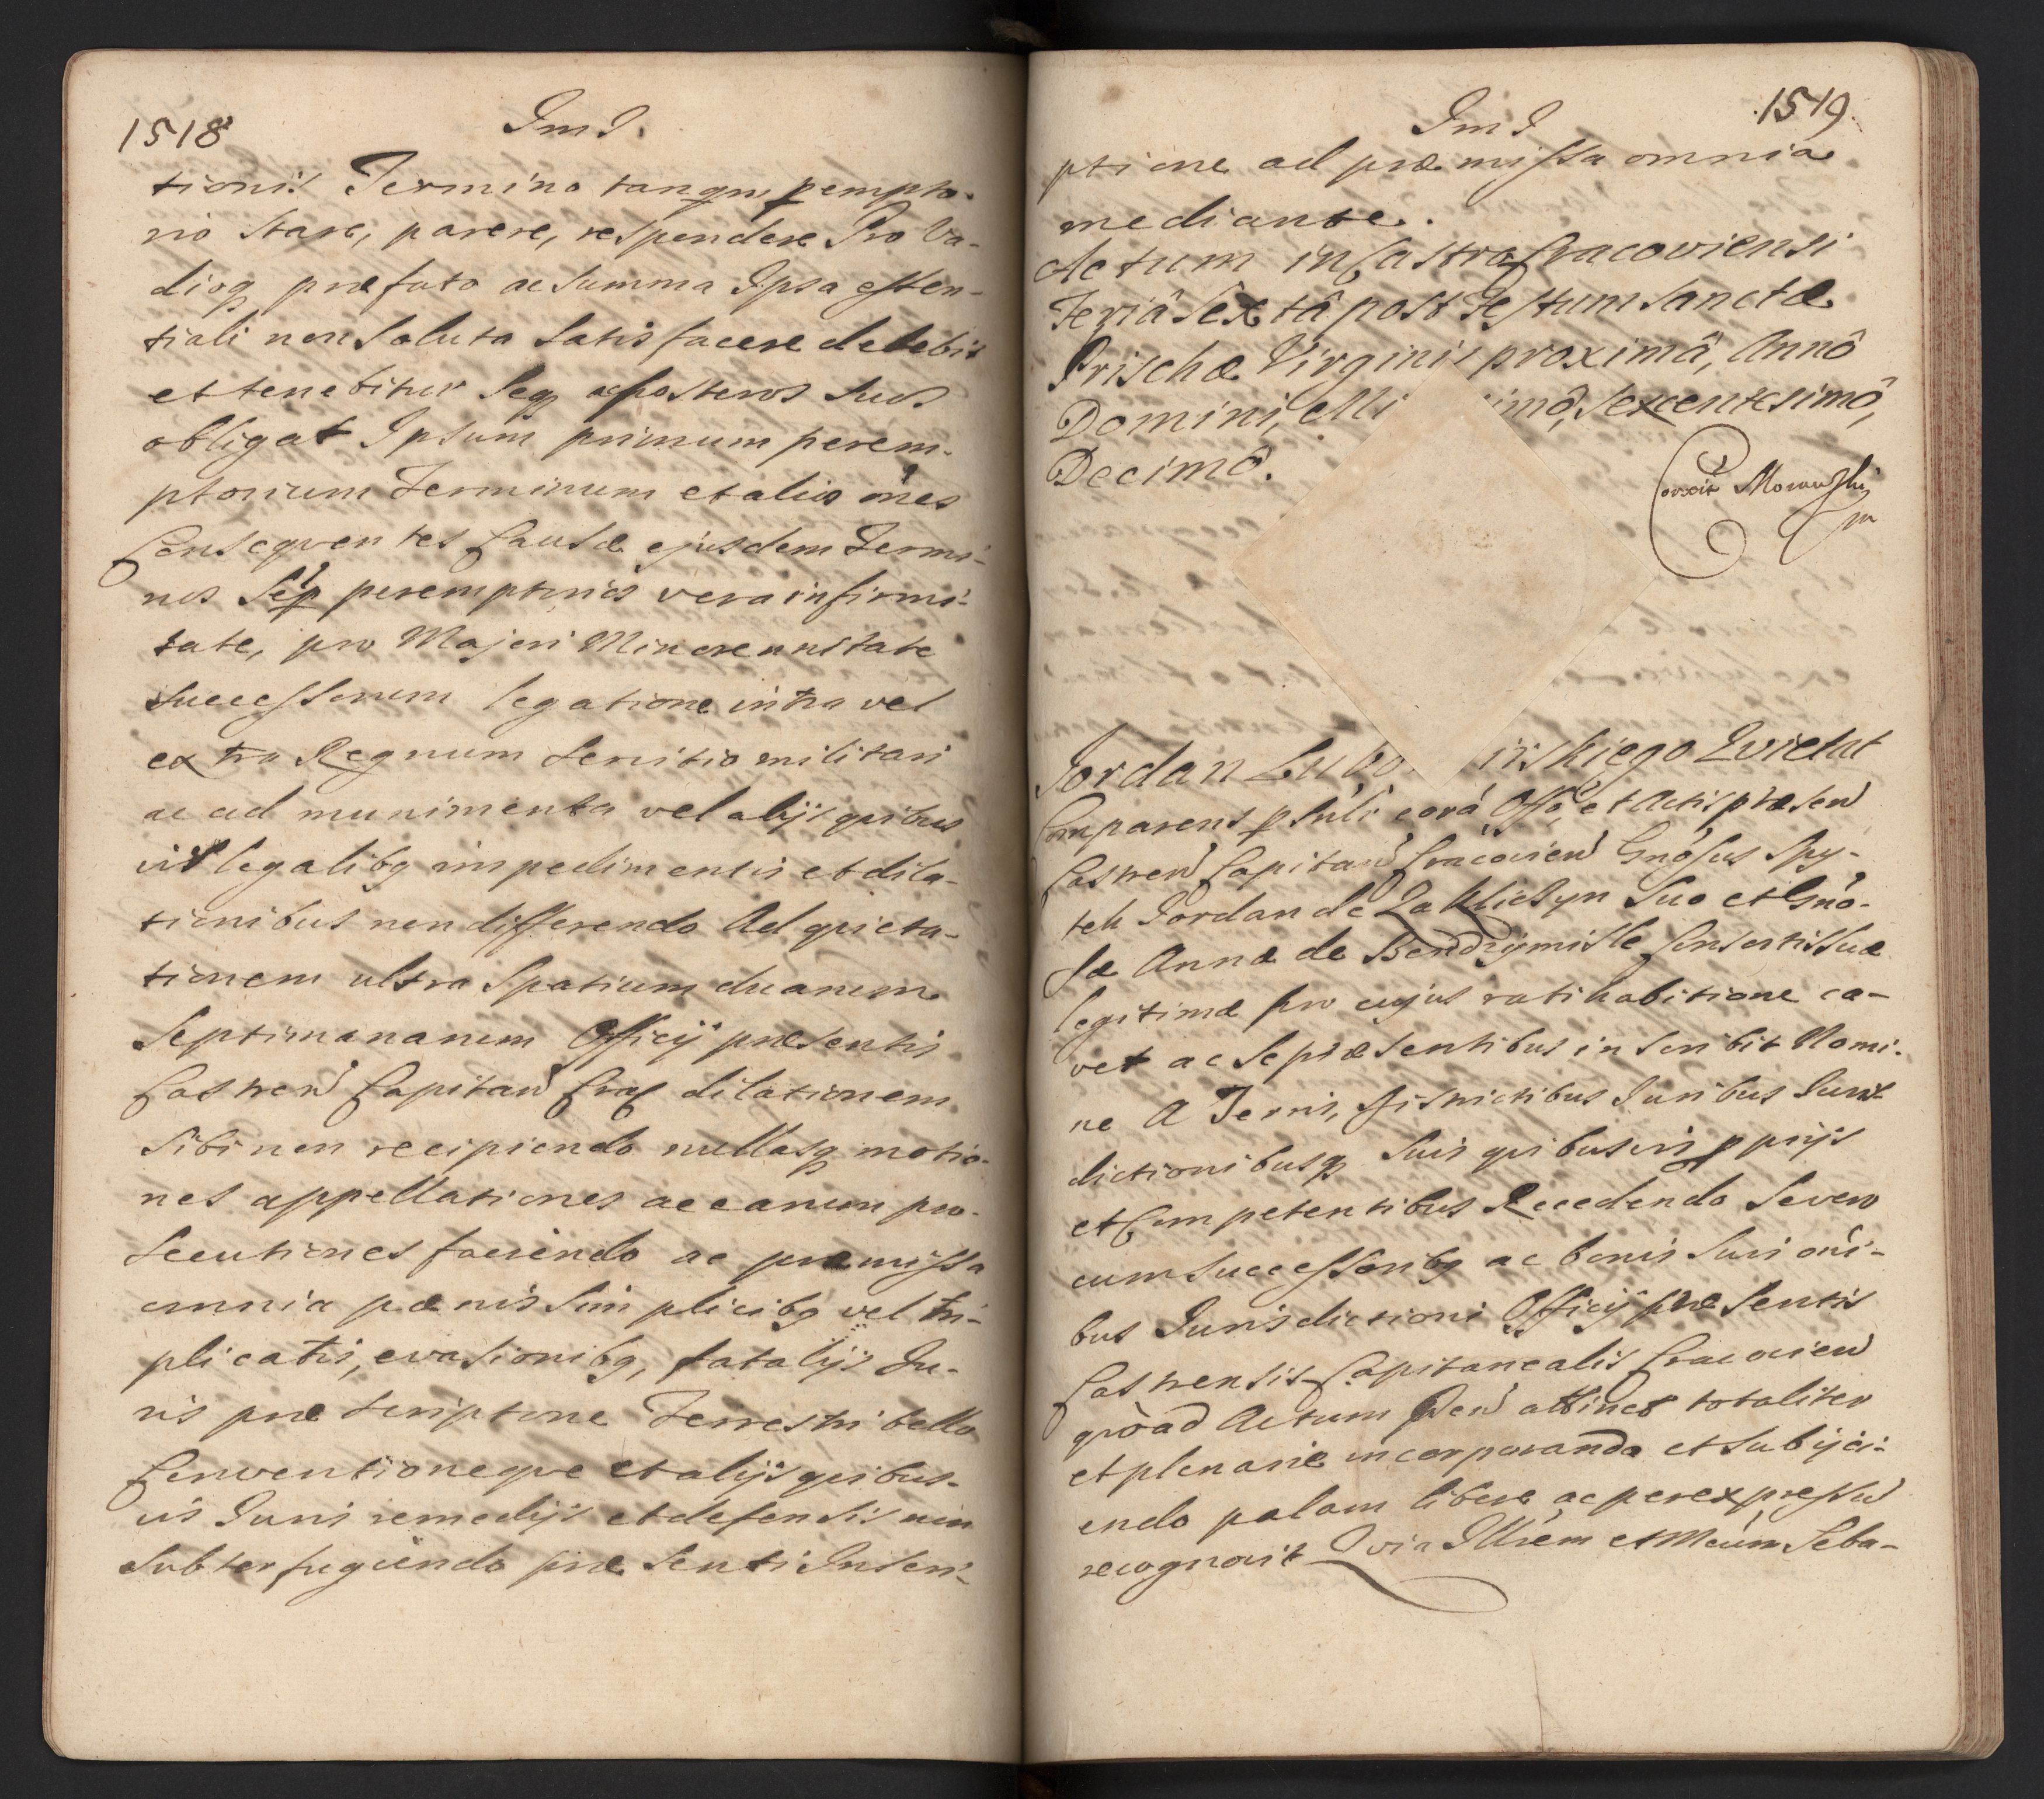 1518
Im I.
tionis Termino tanqm pempto-
rio stare, parere, respondere Pro Va-
dioq præfato ac summa Ipsa essen-
tiali non soluta satisfacere debebit
et tenebitur Seq ac posteros suos
obligat Ipsum primum perem-
ptorium Terminum et alios ones
Consequentes Causæ ejusdem Termi-
nos peremptorios vera infirmi-
tate, pro Majori Minorennitate
successorum legatione intra vel
extra Regnum servitio militari
ac ad munimenta vel alijs quibus
vis legalibq impedimentis et dila-
tionibus non differendo Ad quieta-
tionem ultra spatium duarum
septimanarum Officij præsentis
Castren Capitan Crac dilationem
sibi non recipiendo nullasq motio-
nes appellationes ac earum pro-
secutiones faciendo ac præmissa
omnia pænis simplicibq vel tri-
plicatis, evasionibq, fatalijs Ju-
ris præscriptione Terrestri bello
Conventioneque et alijs quibus-
vis Juris remedijs et defensis non
subterfugiendo præsenti Inscri-
1519.
Im I
ptione ad præmissa omnia
mediante.
Actum in Castro Cracoviensi
Feriâ Sextâ post Festum Sanctæ
Prischæ Virginis proximâ, Annô
Domini, Mi imô, Sexcentesimô,
Decimô.
Corexit Morawski
m
Jordan Lubo irskiego Qvietat
Comparens psnli corâ Offo, et Actis præsen
Castren Capitan Cracovien Gnosus Spy-
tek Jordan de Zakliczyn Suo et Gno-
sæ Annæ de Bendzymisle Consortis suæ
legitimæ pro cujus ratihabitione ca-
vet ac se præsentibus inscribit Nomi-
ne A Terris, Districtibus Juribus Juris-
dictionibusq suis quibusvis pprijs
et Competentibus Recedendo Se vero
cum successoribq ac bonis suis oni-
bus Jurisdictioni Officij præsentis
Castrensis Capitanealis Cracovien
quoad Actum attinet totaliter
et plenarie incorporando et subijci-
endo palam libere ac per expressu
recognovit Qvia Illrem et Mcum Seba-